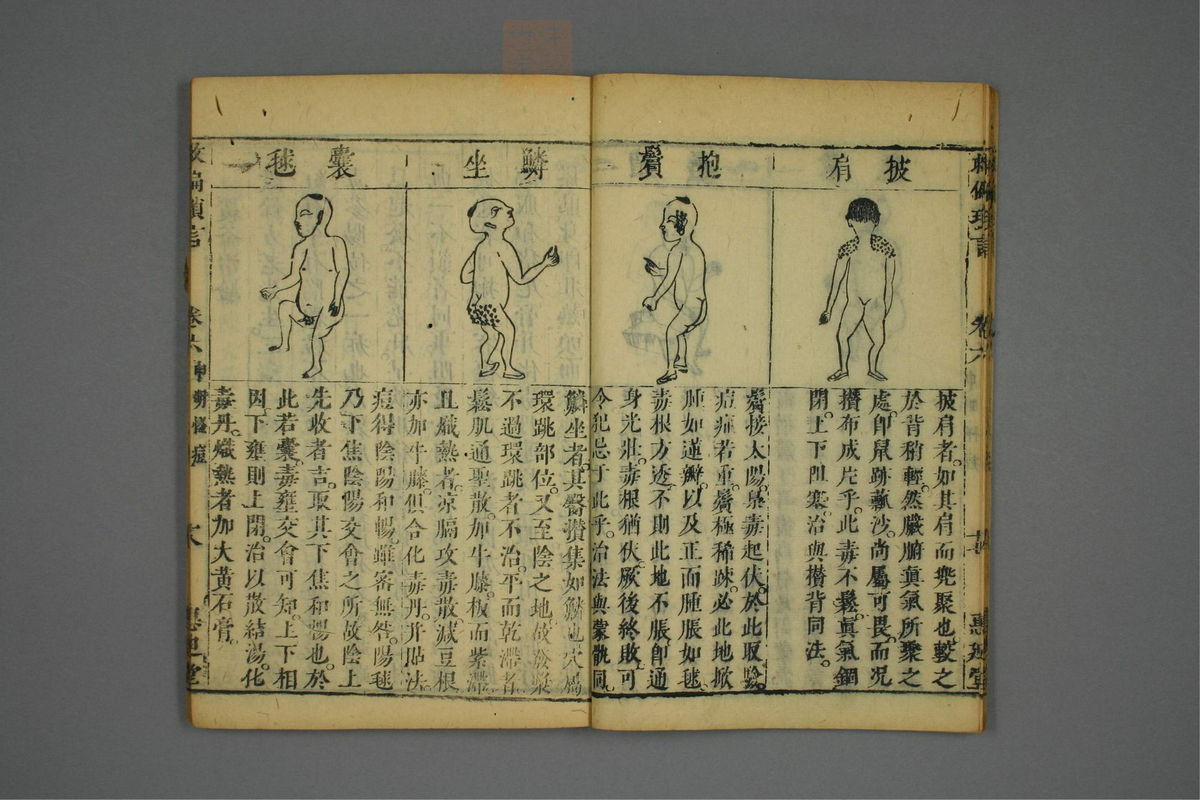 披肩
披肩者。如其肩而兜聚也。較之
於背稍輕。然臟腑真氣所聚之
處。卽鼠跡蠶沙。尚屬可畏。而況
攢布成片乎。此毒不鬆。真氣錮
閉。上下阻塞。治與攢背同法。
抱鬢
鬢接太陽。梟毒起伏。於此取驗。
痘症若重。鬢極稀疎。必此地掀
腫如蓮瓣。以及正面腫脹如毬。
毒根方透。不則此地不脹。卽通
身光壯。毒根猶伏。厥後終敗。可
令犯忌于此乎。治法與蒙同。
鱗坐
鱗坐者。其臀攢集如鱗也。穴屬
環跳部位。又至陰之地。故發漿
不過環跳者不治。平而乾滯者。
鬆肌通聖散。加牛膝。板而紫滯。
且熾熱者。凉膈攻毒散。減豆根
亦加牛膝。俱合化毒丹。并貼法。
囊毬
痘得陰陽和暢。雖密無咎。陽毬
乃下焦陰陽交會之所。故陰上
先收者吉。取其下焦和暢也。於
此若囊。毒壅交會可知。上下相
因。下壅則上閉。治以散結湯。化
毒丹。熾熱者加大黃石膏。
救偏瑣言 卷六